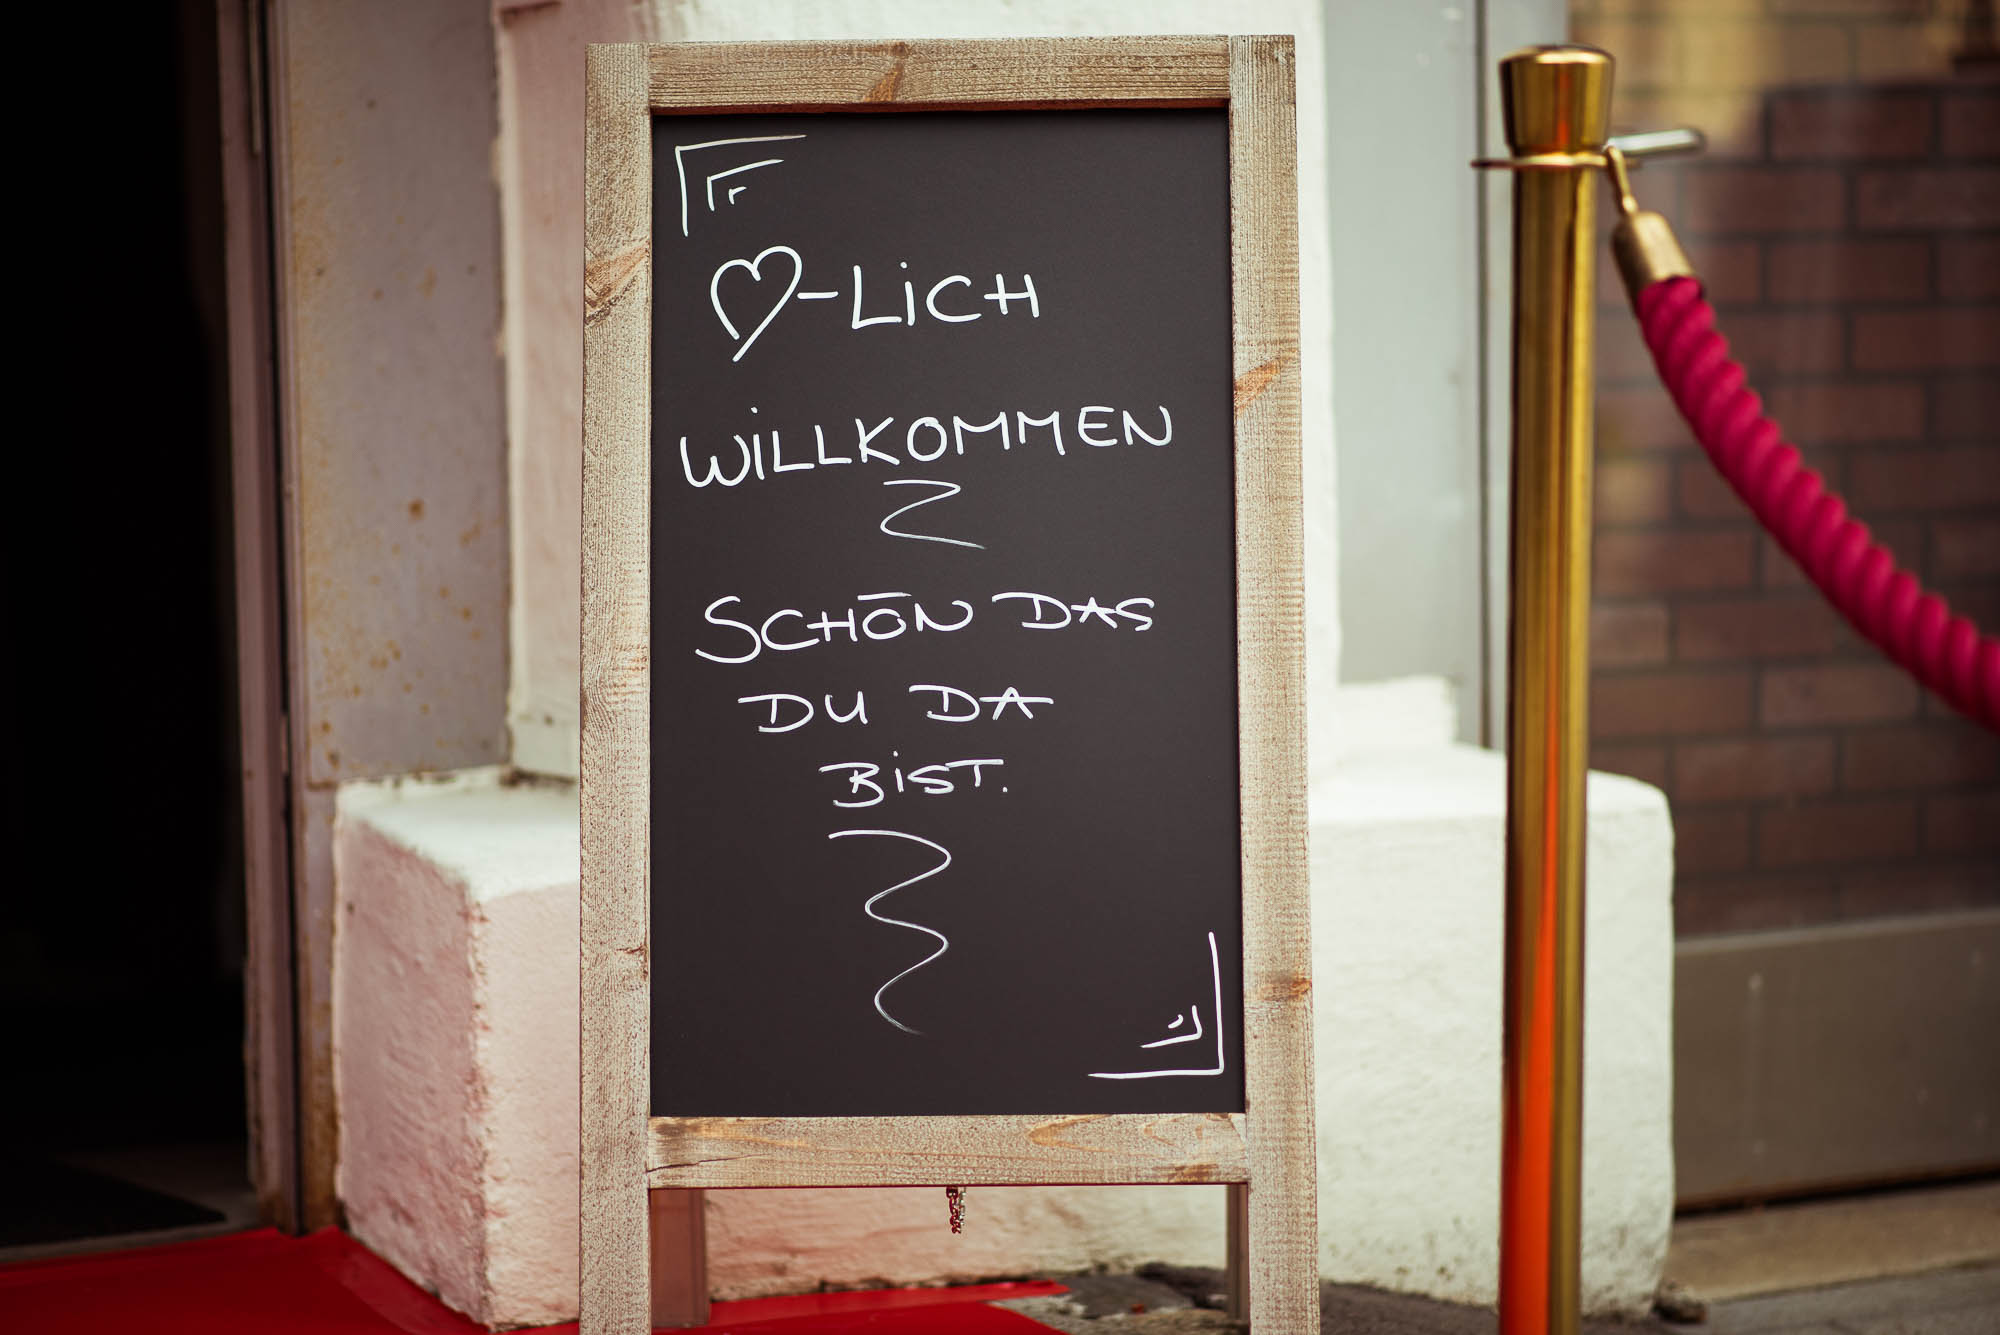 ♡-LiCH
WiLLKOMMEN
SCHŌN DAS
DU DA
BiST.